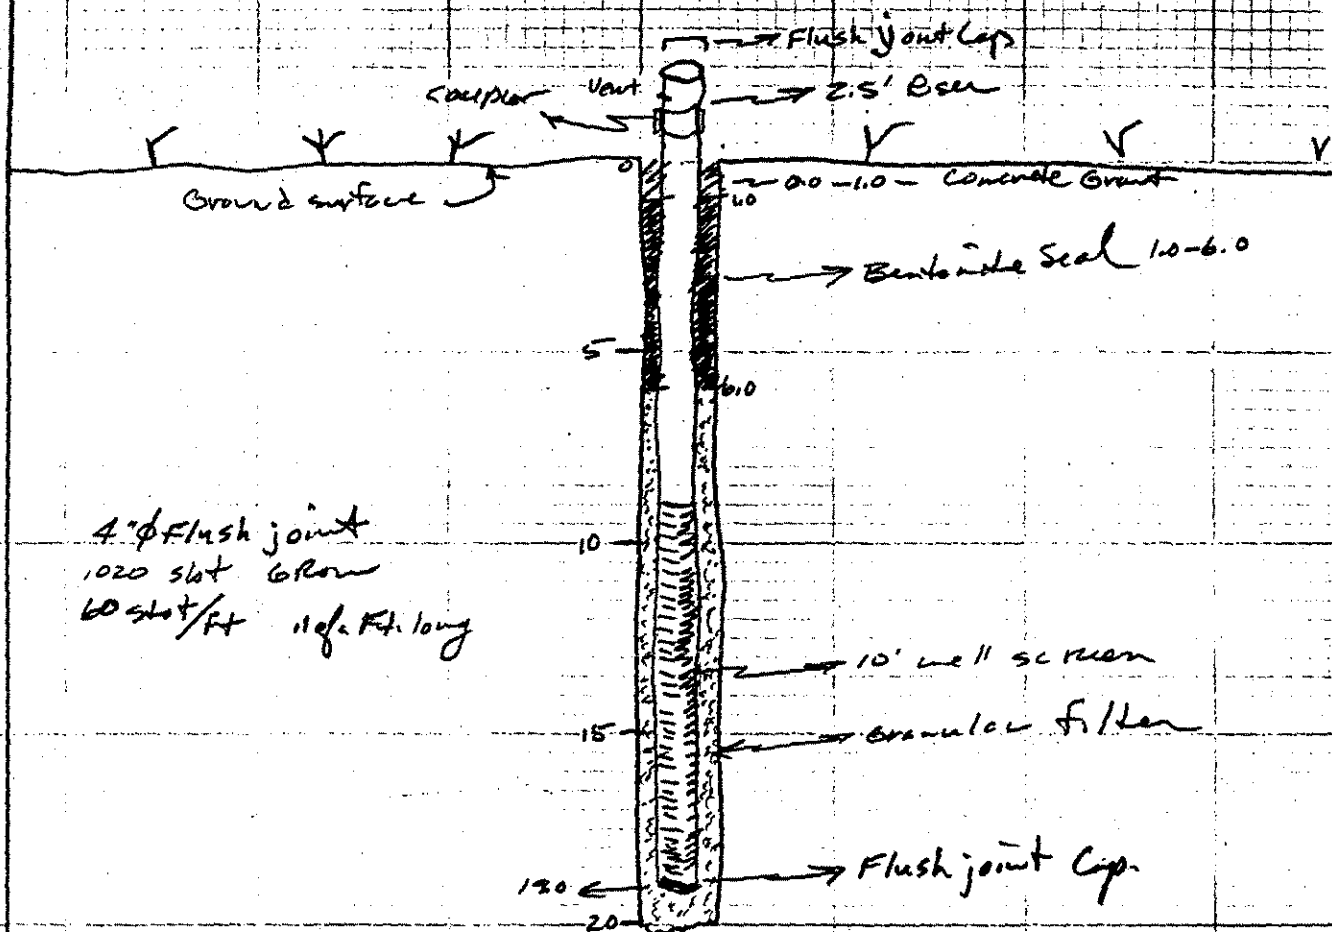 Flush joint Cap
Vent
coupler
2.5'
0
Ground surface
0.0-1.0 - Concrete Grout
1.0
Bentonite Seal 1.0-6.0
5
6.0
4"φ Flush joint
.020 slot
10
60 slot/ft Ft. long
10' well screen
15
Granular filter
Flush joint Cap.
20